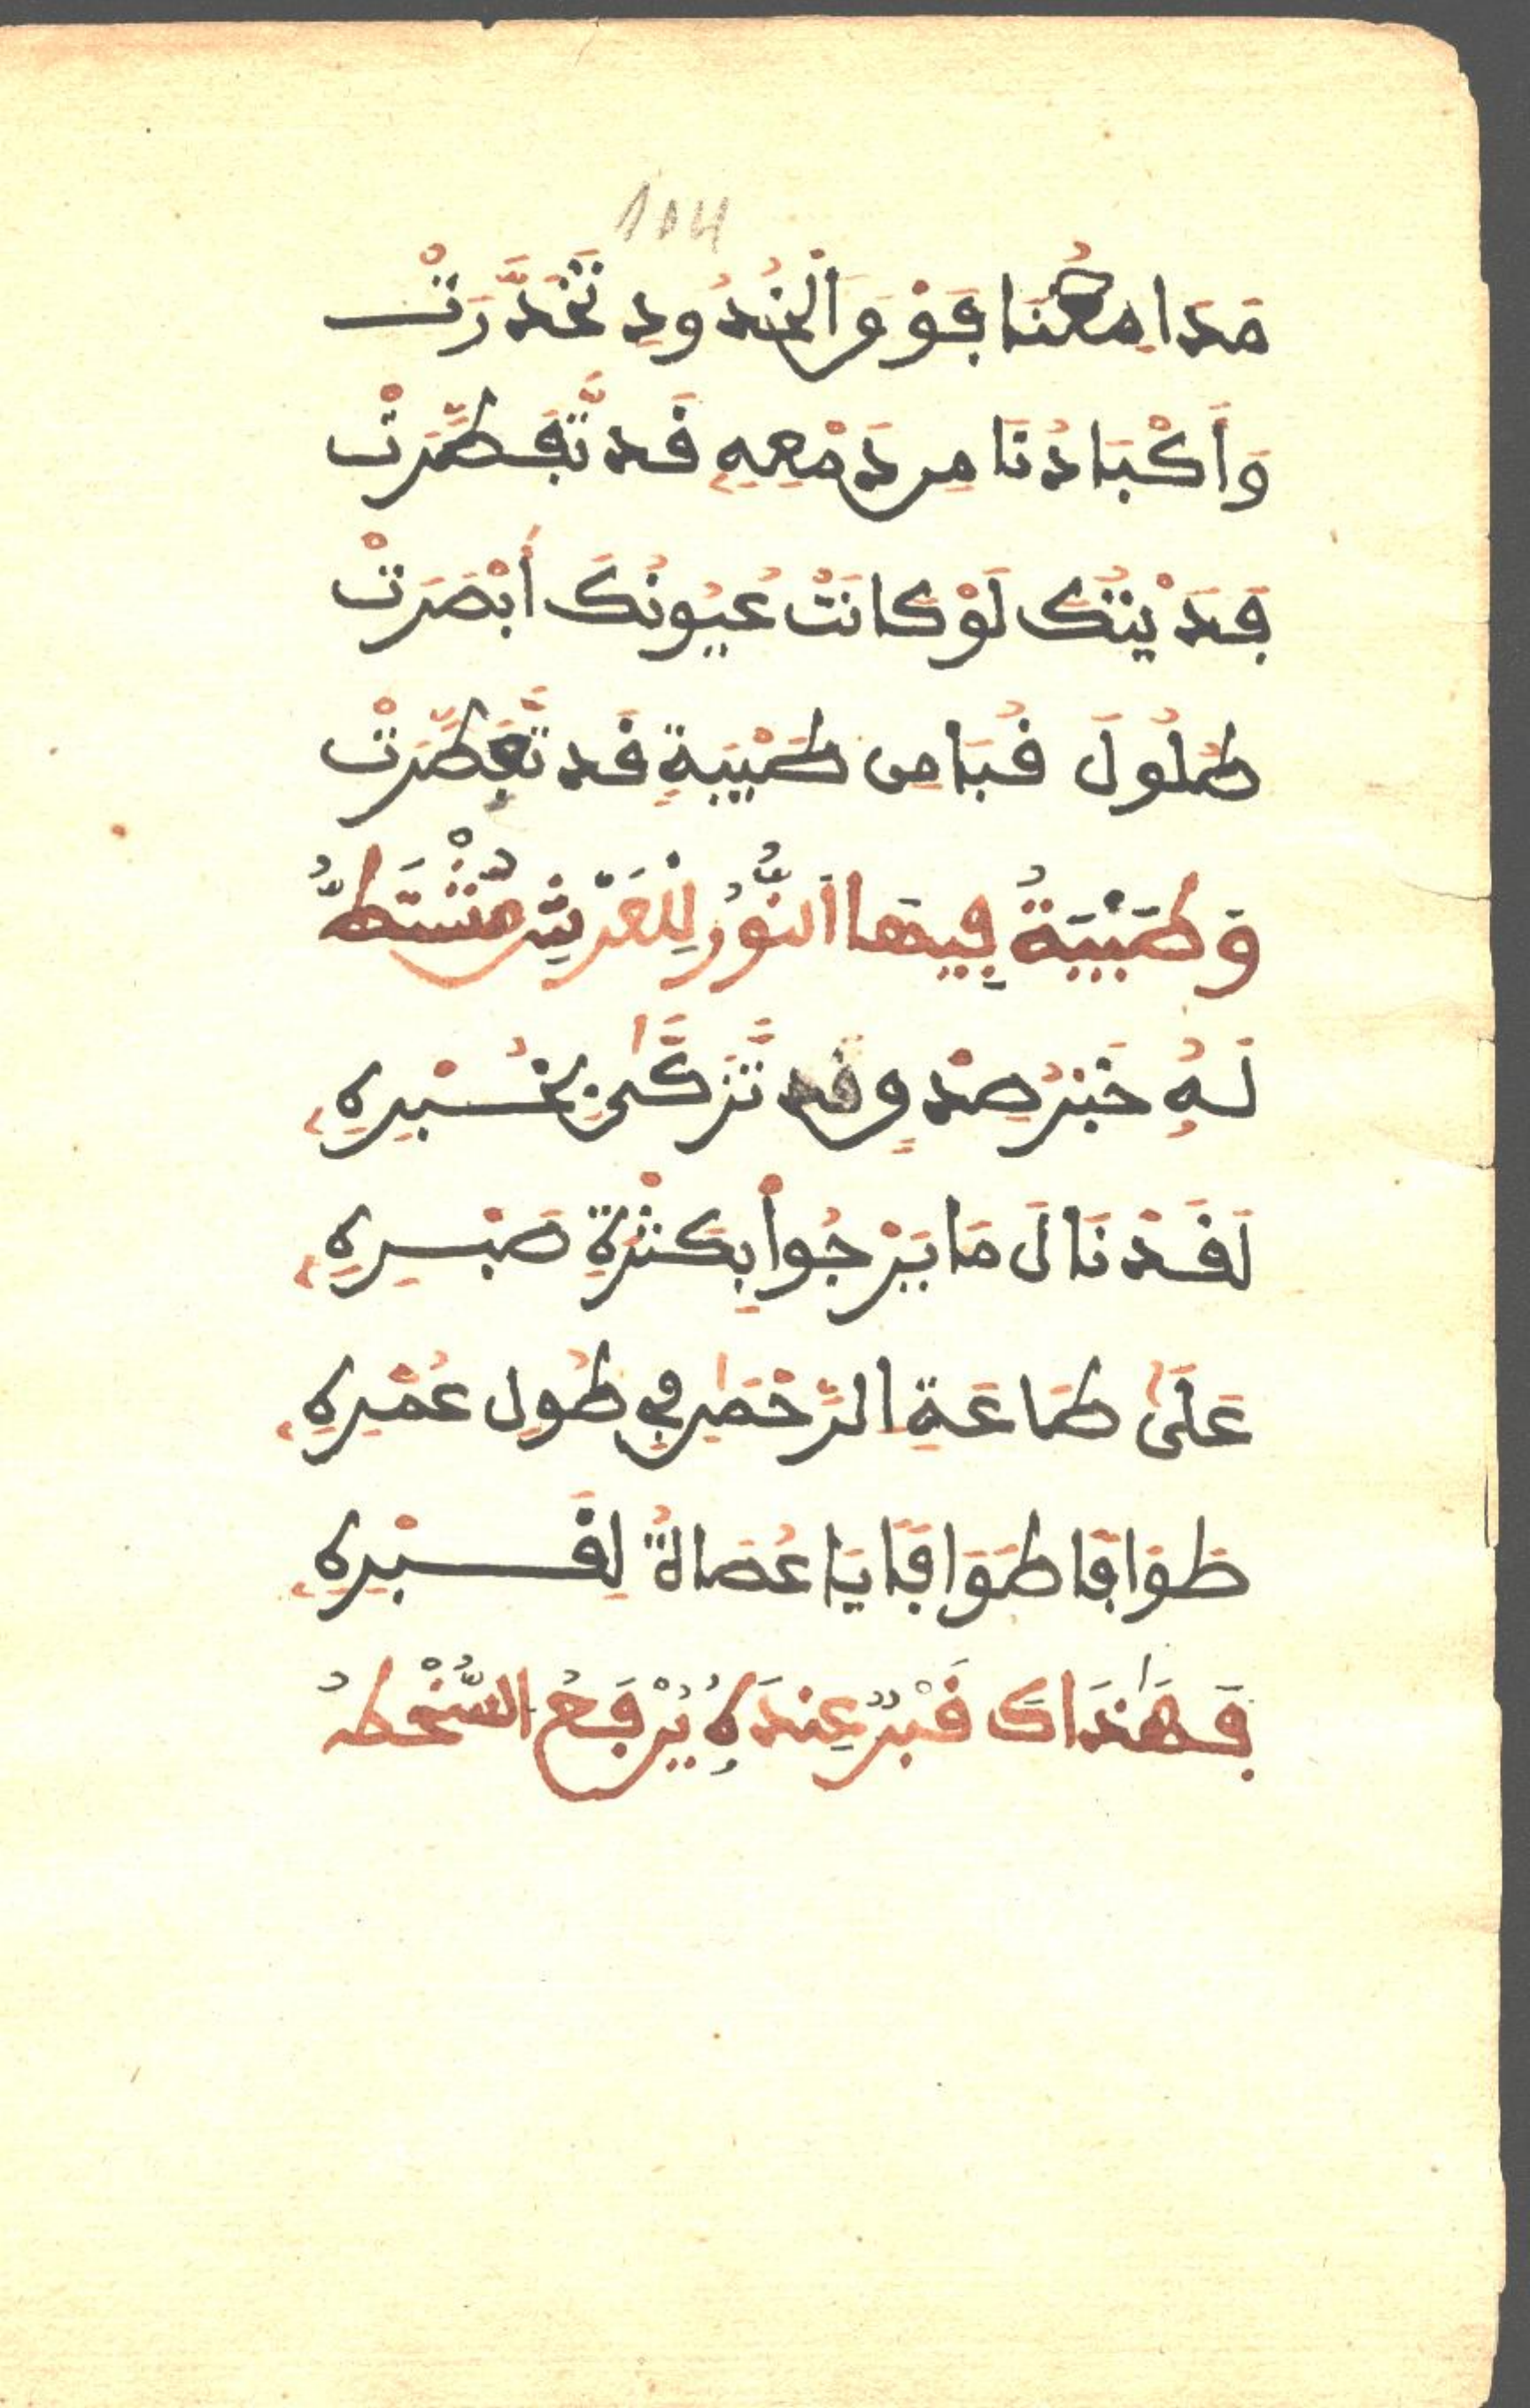 104
مَدَامِعُنَا فَوْقَ اَلْخُدُودِ تَخَدَّرَتْ
وَأَكْبَادُنَا مِن دَمْعِهِ قَد تَّفَطَّرَتْ
فَدَيْتُكَ لَوْ كَانَتْ عُيُونُكَ أَبْصَرَتْ
طُلُولَ قُبَا مِن طَيْبَةٍ قَد تَّعَطَّرَتْ
وَطَيْبَةُ فِيهَا اَلنُّورُ لِلْعَرْشِ مُشْتَطُّ
لَهُ خَبَرُ صِدْقٍ قَد تَّزَكَّىٰ بِخُبْرِهِ
لَقَدْ نَالَ مَا يَرْجُواْ بِكَثْرَةِ صَبْرِهِ
عَلَىٰ طَاعَةِ الرَّحْمَٰنِ فِي طُولِ عُمْرِهِ
طَوَافَا طَوَافَا يَا عُصَاةُ لِقَبْرِهِ
فَهَٰذَاكَ قَبْرٌ عِندَهُ يُرْفَعُ السُّخْطُ